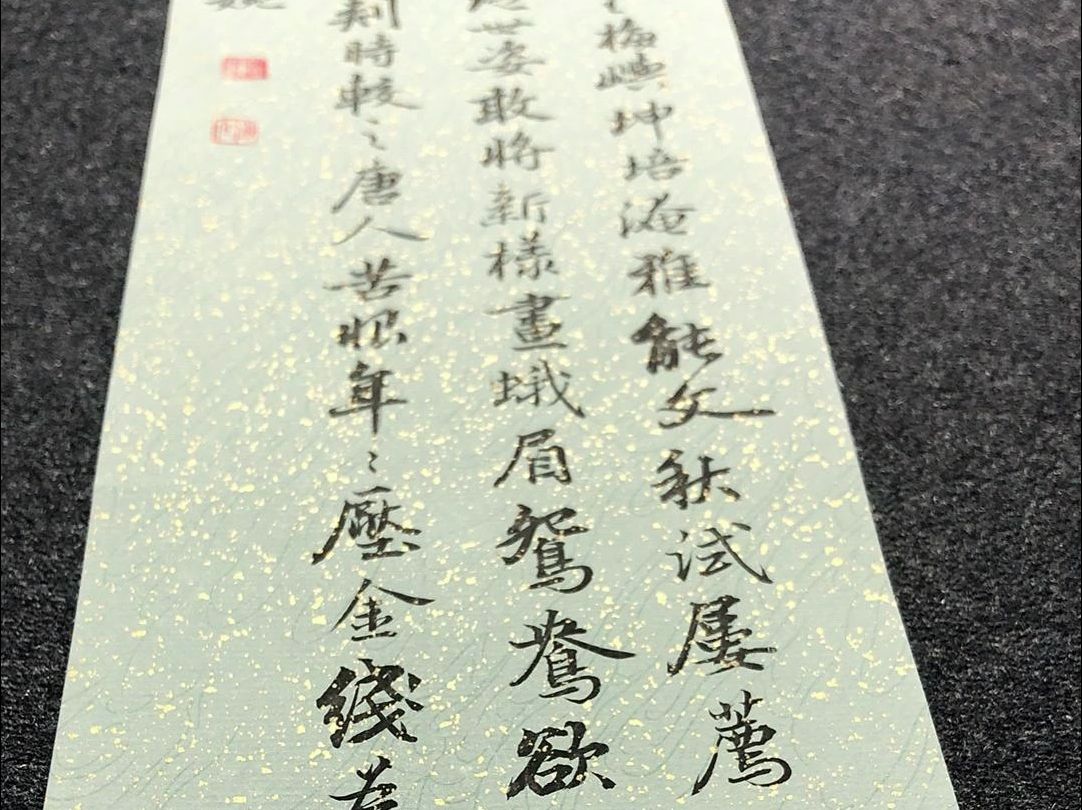 梅嶼坤培淹雅能文秋試屢薦
世姿敢將新樣畫蛾眉鴛鴦欲
刺時較之唐人苦恨年〻壓金綫